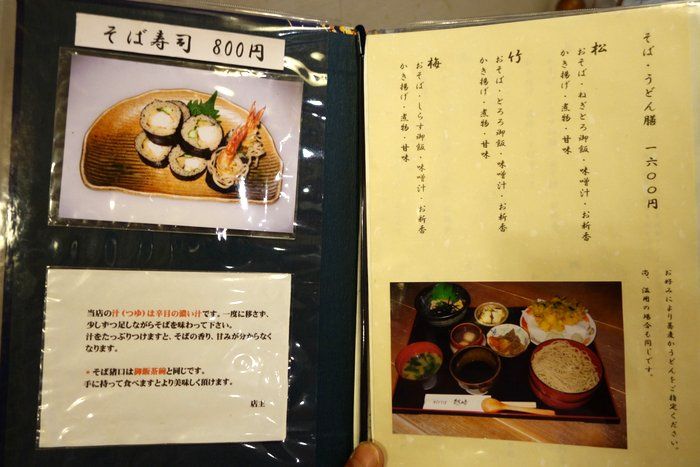 そば寿司 800円
当店の汁(つゆ)は辛目の濃い汁です。一度に移さず、
少しずつ足しながらそばを味わって下さい。
汁をたっぷりつけますと、そばの香り、甘みが分からなく
なります。
* そば猪口は御飯茶碗と同じです。
手に持って食べますとより美味しく頂けます。
店主
そば・うどん膳 一六〇〇円
松
おそば・ねぎとろ御飯・味噌汁・お新香
かき揚げ・煮物・甘味
竹
おそば・とろろ御飯・味噌汁・お新香
かき揚げ・煮物・甘味
梅
おそば・しらす御飯・味噌汁・お新香
かき揚げ・煮物・甘味
お好みにより蕎麦かうどんをご指定ください。
尚、温用の場合も同じです。